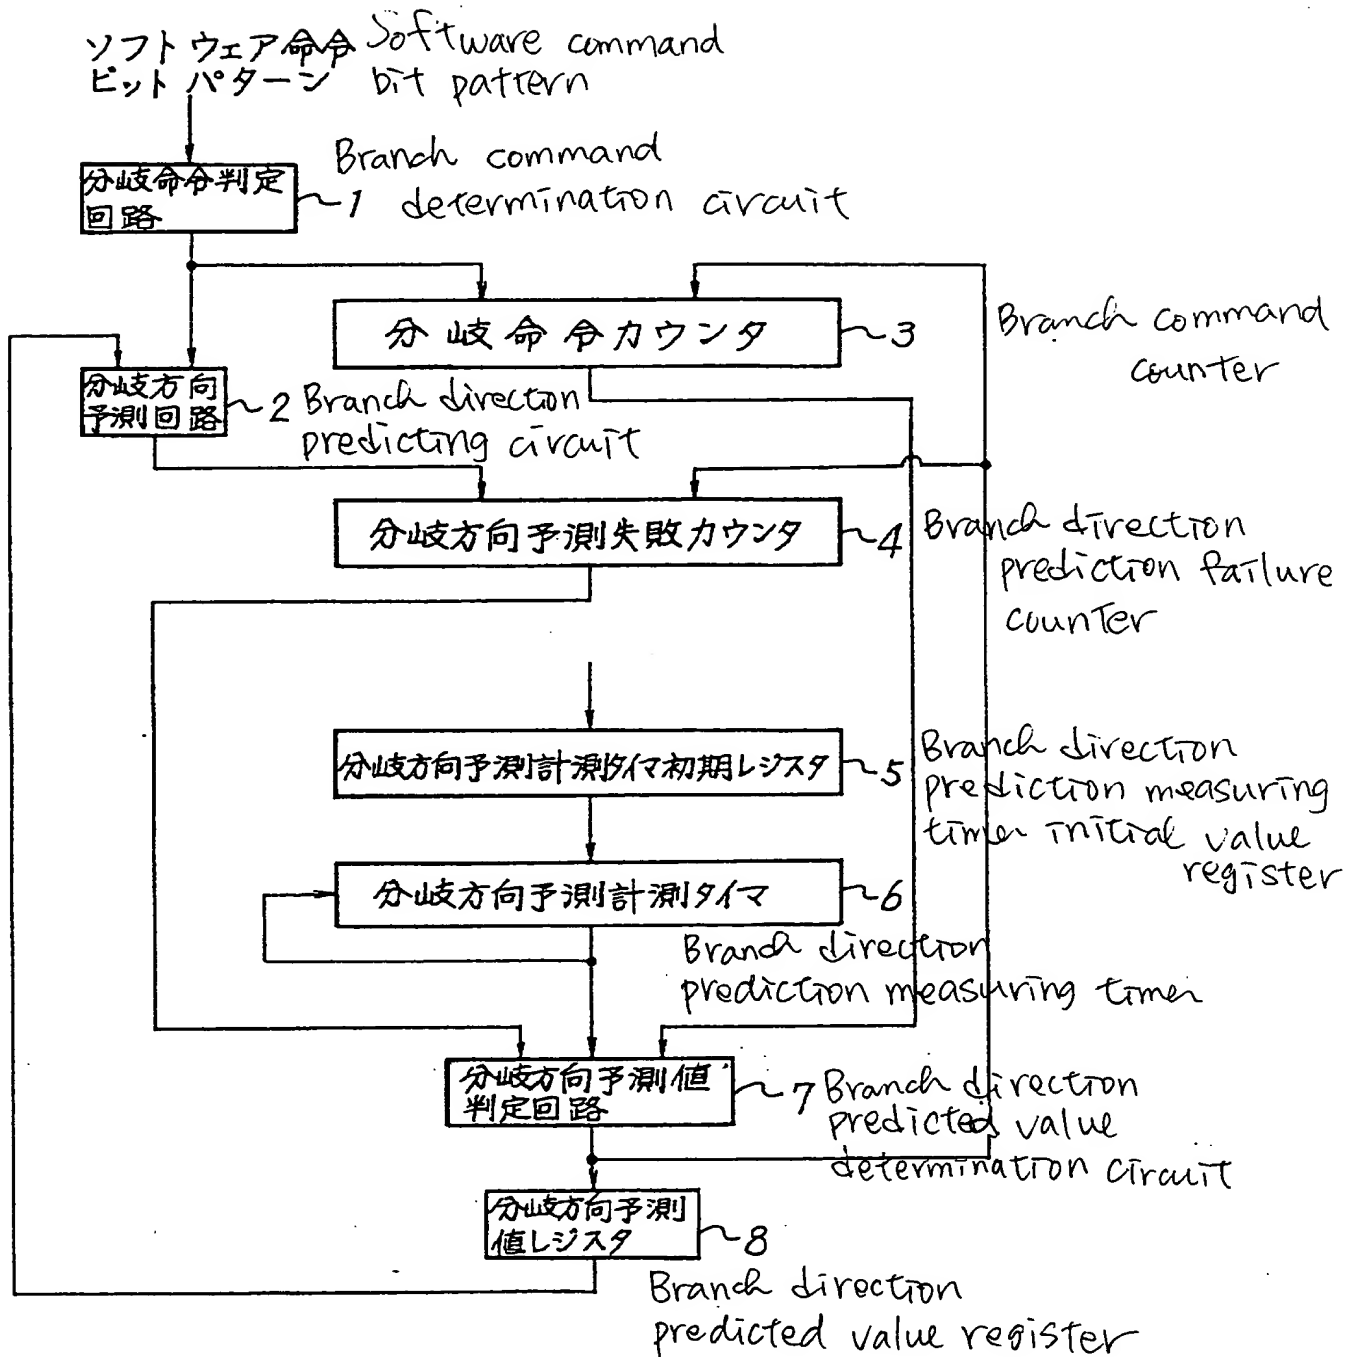 ソフトウェア命令 Software command
ビットパターン bit pattern
Branch command
分岐命令判定
回路
1 determination circuit
分岐命令カウンタ
3
Branch command
counter
分岐方向
予測回路
2 Branch direction
predicting circuit
分岐方向予測失敗カウンタ
4 Branch direction
prediction failure
counter
分岐方向予測計測タイマ初期レジスタ
5 Branch direction
prediction measuring
timer initial value
register
分岐方向予測計測タイマ
6
Branch direction
prediction measuring timer
分岐方向予測値
判定回路
7 Branch direction
predicted value
determination circuit
分岐方向予測
値レジスタ
8
Branch direction
predicted value register